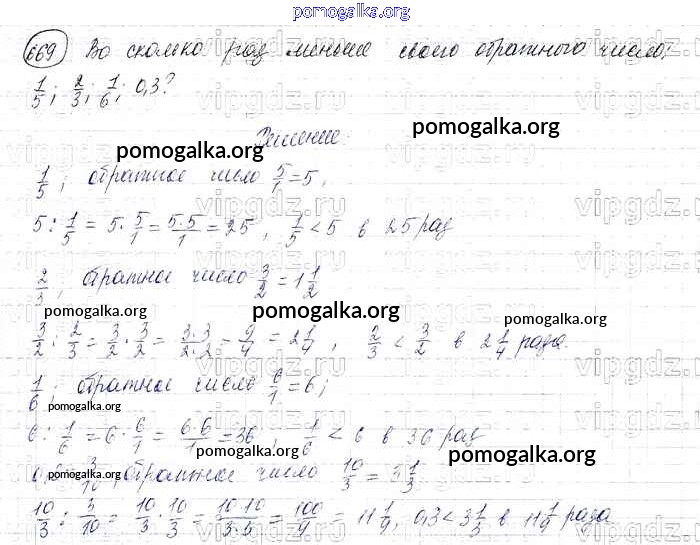 pomogalka.org
669 Во сколько раз меньше своего обратного число:
1/5; 2/3; 1/6; 0,3?
pomogalka.org
Решение:
pomogalka.org
1/5; обратное число 5/1 = 5,
5 : 1/5 = 5 · 5/1 = 5·5/1 = 25, 1/5 < 5 в 25 раз
2/3, обратное число 3/2 = 1 1/2
pomogalka.org
pomogalka.org
3/2 : 2/3 = 3/2 · 3/2 = 3·3/2·2 = 9/4 = 2 1/4, 2/3 < 3/2 в 2 1/4 раза.
1/6; обратное число 6/1 = 6;
pomogalka.org
6 : 1/6 = 6 · 6/1 = 6·6/1 = 36, 1/6 < 6 в 36 раз
pomogalka.org
pomogalka.org
3/10, обратное число 10/3 = 3 1/3
10/3 : 3/10 = 10/3 · 10/3 = 10·10/3·3 = 100/9 = 11 1/9, 0,3 < 3 1/3 в 11 1/9 раза
vipgdz.ru